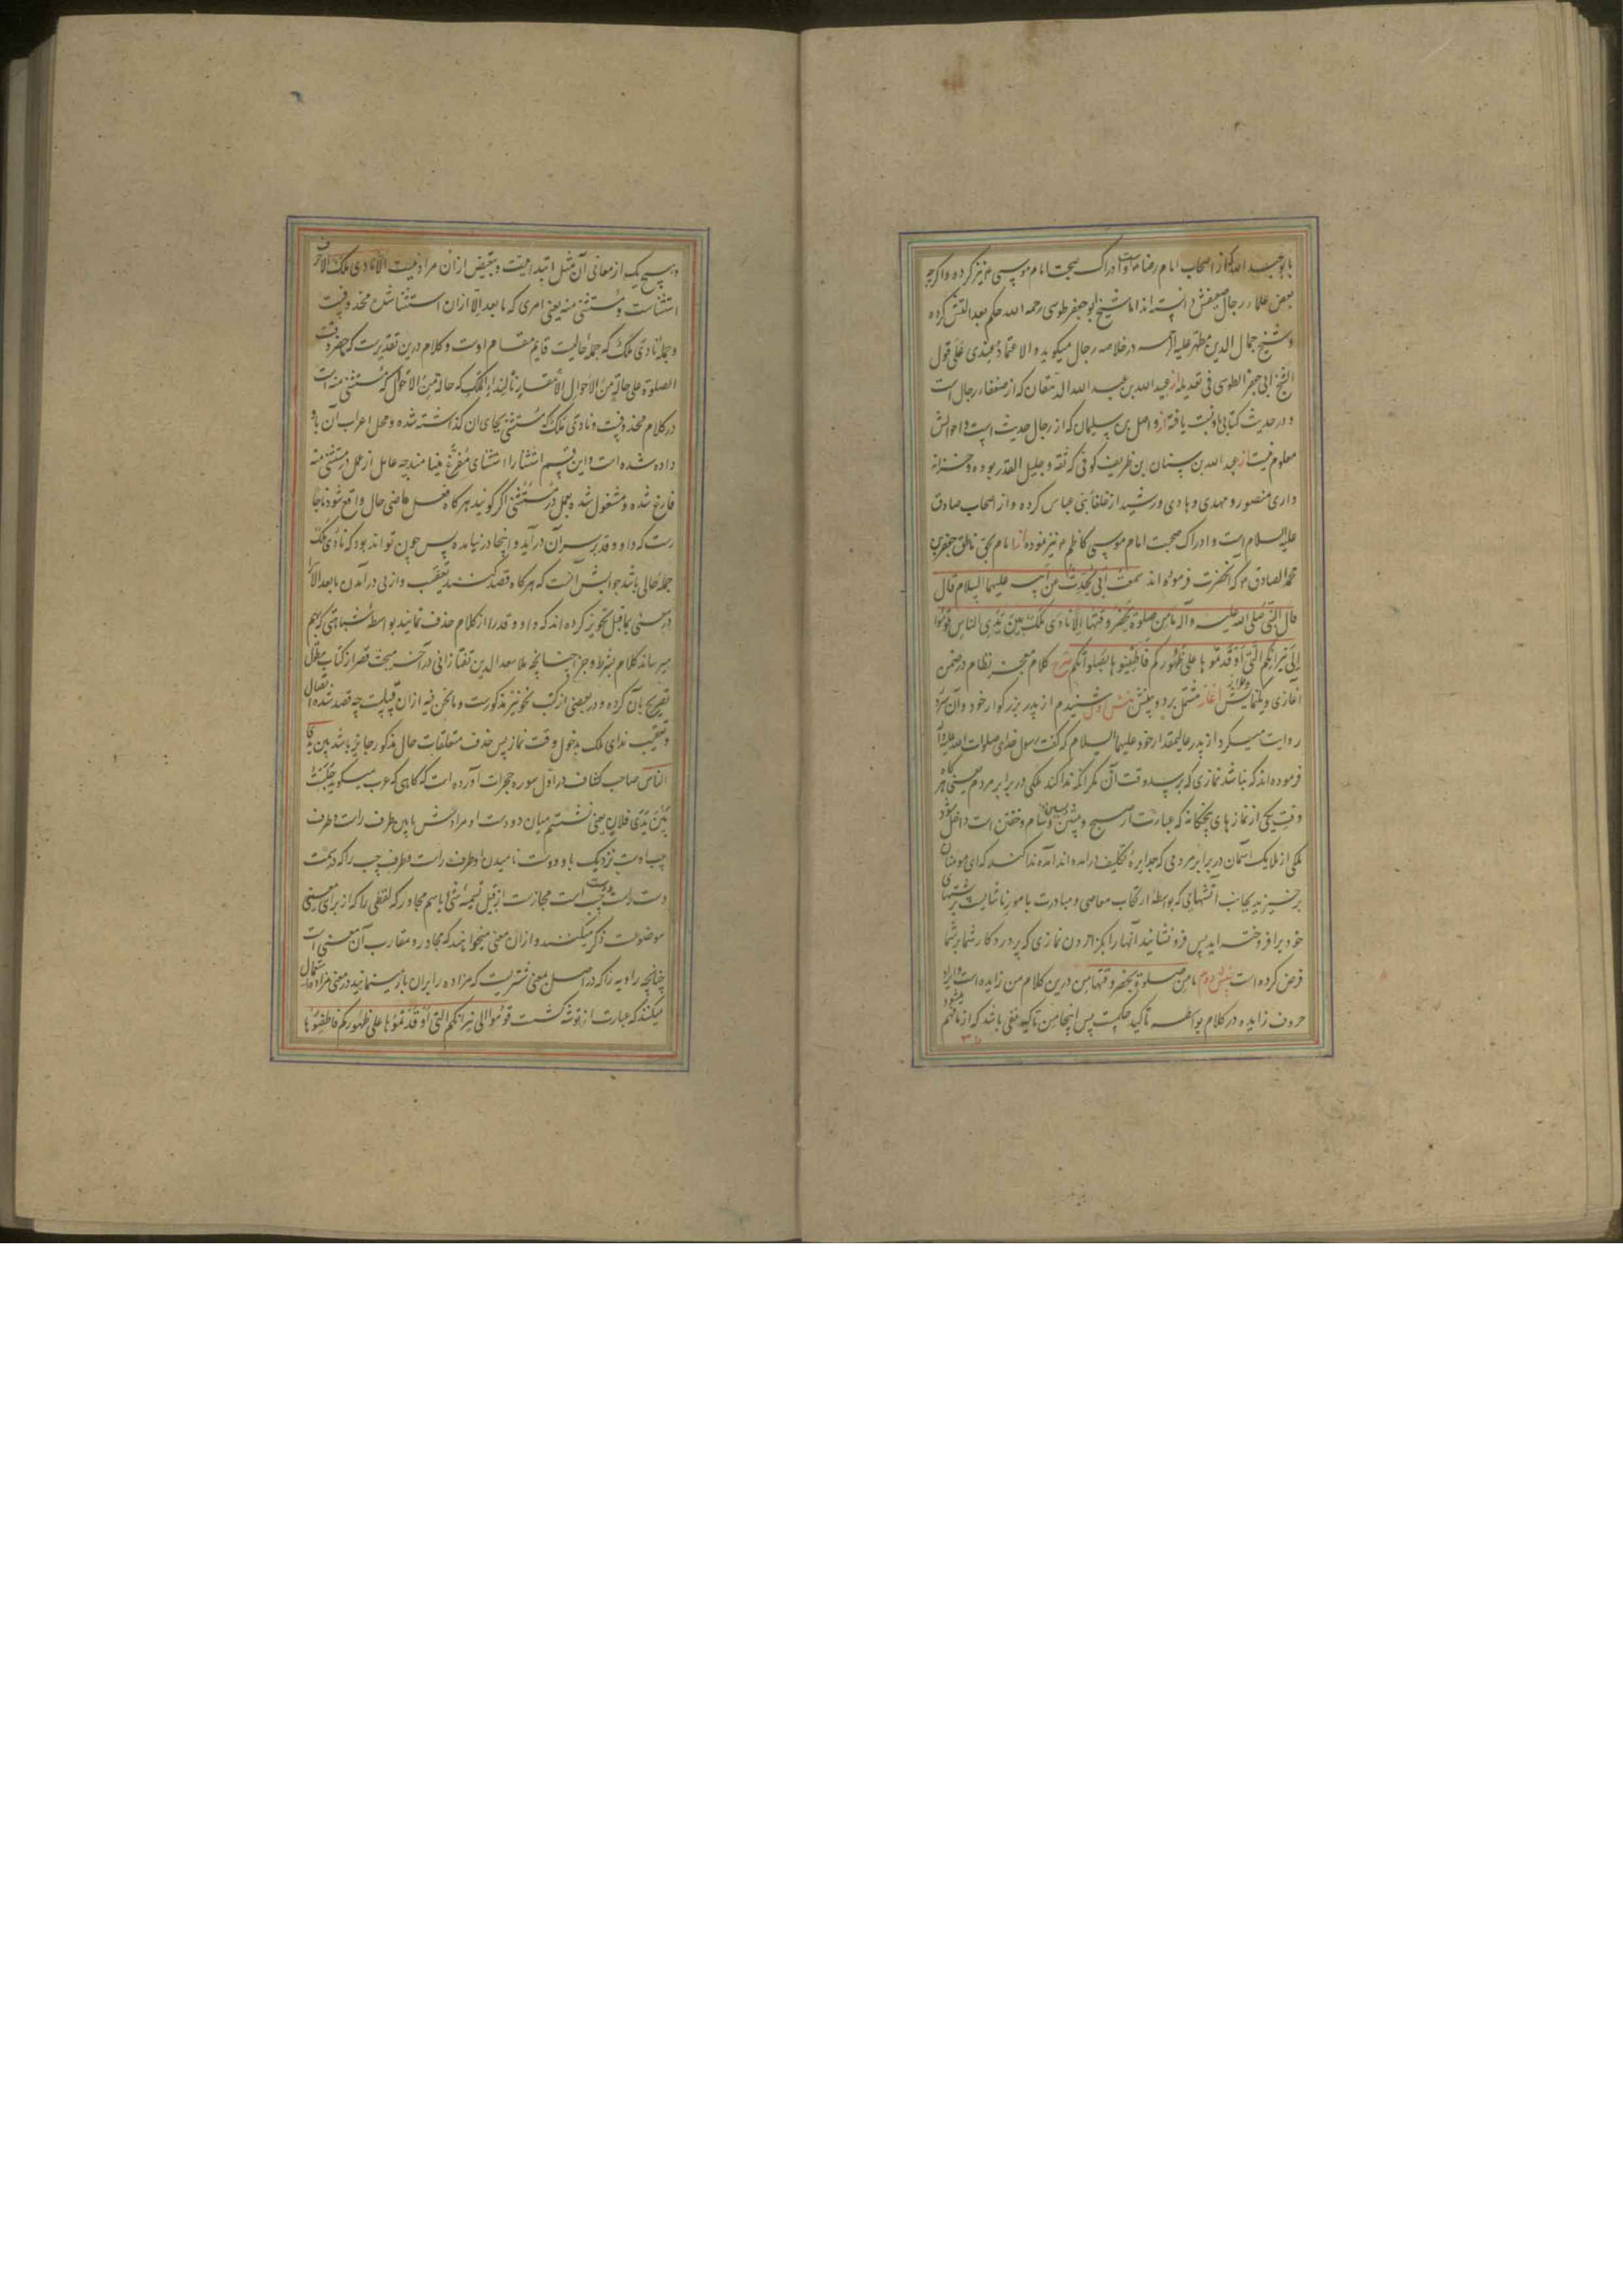 بابو عبد الله که از اصحاب امام رضا است و ادراک صحبت امام موسی م نیز کرده و اگرچه
بعض علماء رجال ضعیفش دانسته اند اما شیخ ابو جعفر طوسی رحمه الله حکم بعدالتش کرده
و شیخ جمال الدین مطهر علیه الرحمه در خلاصه رجال میکوید و الاعتماد عندی علی قول
الشیخ ابی جعفر الطوسی فی تعدیله از عبید الله بن عبد الله الدهقان که از ضعفاء رجال است
و در حدیث کتابی باو نسبت یافته از واصل بن سلیمان که از رجال حدیث است و احوالش
معلوم نیست از عبد الله بن سنان بن ظریف کوفی که ثقه و جلیل القدر بوده و خزانه
داری منصور و مهدی و هادی و رشید از خلفا بنی عباس کرده و از اصحاب صادق
علیه السلام است و ادراک صحبت امام موسی کاظم م نیز نموده از امام بحق ناطق جعفر بن
محمد الصادق م که آنحضرت فرموده اند سمعت ابی یحدث عن ابیه علیهما السلام قال
قال النبی صلی الله علیه و آله ما من صلوة یحضر وقتها الا نادی ملک بین یدی الناس قوموا
الی نیرانکم التی اوقدتموها علی ظهورکم فاطفئوها بصلواتکم شرح کلام معجز نظام در ضمن
آغازی و نمایش آغاز مشتمل بر دو بینش بینش اول شنیدم از پدر بزرکوار خود و آن سرور
روایت میکرد از پدر عالیمقدار خود علیهما السلام که گفت رسول خدای صلوات الله علیه و آله
فرموده اند که نباشد نمازی که برسد وقت آن مکر آنکه ندا کند ملکی در برابر مردم یعنی هر گاه
وقت یکی از نمازهای پنجگانه که عبارتست از صبح و پیشین و پسین و شام و خفتن است داخل شود
ملکی از ملایک آسمان در برابر مردمی که بدایرهٔ تکلیف درآمده اند آمده ندا کند که ای مؤمنان
برخیزید بجانب آتشهائی که بواسطهٔ ارتکاب معاصی و مبادرت بامور ناشایست بر پشتهای
خود برافروخته اید پس فرونشانید آنها را بکزاردن نمازی که پروردکار شما بر شما
فرض کرده است بینش دوم ما من صلوة یحضر وقتها من درین کلام من زایده است و ایراد
حروف زایده در کلام بواسطه تاکید حکمست پس اینجا من تاکید نفی باشد که از ما فهم میشود
و هیچ یک از معانی آن مثل ابتدائیت و تبعیض ازان مراد نیست الا نادی ملک الا حرف
استثناست و مستثنی منه یعنی امری که ما بعد الا ازان استثنا شده محذوفست
و جملهٔ نادی ملک که جملهٔ حالیست قایم مقام اوست و کلام درین تقدیرست که یحضر وقت
الصلوة علی حالة من الاحوال الا مقارنا لنداء الملک که حالة من الاحوال که مستثنی منه است
در کلام محذوفست و نادی ملک که مستثنی بجای آن گذاشته شده و محل اعراب آن باو
داده شده است و این قسم استثنا را استثنای مفرغ مینامند چه عامل از عمل در مستثنی منه
فارغ شده و مشغول شده بعمل در مستثنی اگر کویند هرکاه فعل ماضی حال واقع شود ناچا
رست که واو و قد بر سر آن درآید و اینجا در نیامده پس چون تواند بود که نادی ملک
جملهٔ حالی باشد جوابش آنست که هرکاه قصد کنند تعقیب و از پی درآمدن ما بعد الا را
در معنی بماقبل تجویز کرده اند که واو و قد را از کلام حذف نمایند بواسطهٔ شباهتی که بهم
میرساند کلام بشرط و جزا چنانچه ملا سعد الدین تفتازانی در آخر مبحث قصر از کتاب مطول
تصریح بآن کرده و در بعضی از کتب نحو نیز مذکورست و ما نحن فیه ازان قبیلست چه قصد شده اتصال
و تعقیب ندای ملک بدخول وقت نماز پس حذف متعلقات حال مذکور جایز باشد بین یدی
الناس صاحب کشاف در اول سوره حجرات آورده است که کاهی که عرب میکوید جلست
بین یدی فلان یعنی نشستم میان دو دست او مرادش ما بین طرف راست و طرف
چپ اوست نزدیک باو و دست نامیدن او طرف راست و طرف چپ را که در سمت
دست راست و دست چپ است مجازست از قبیل تسمیه شئ باسم مجاور که لفظی را که از برای معنی
موضوعست ذکر میکنند و ازان معنی میخواهند که مجاور و مقارب آن معنی است
چنانچه راویه را که در اصل بمعنی شتریست که مزاده را بران بار مینمایند در معنی مزاده استعمال
میکنند که عبارت از توشه کشست قوموا الی نیرانکم التی اوقدتموها علی ظهورکم فاطفئوها